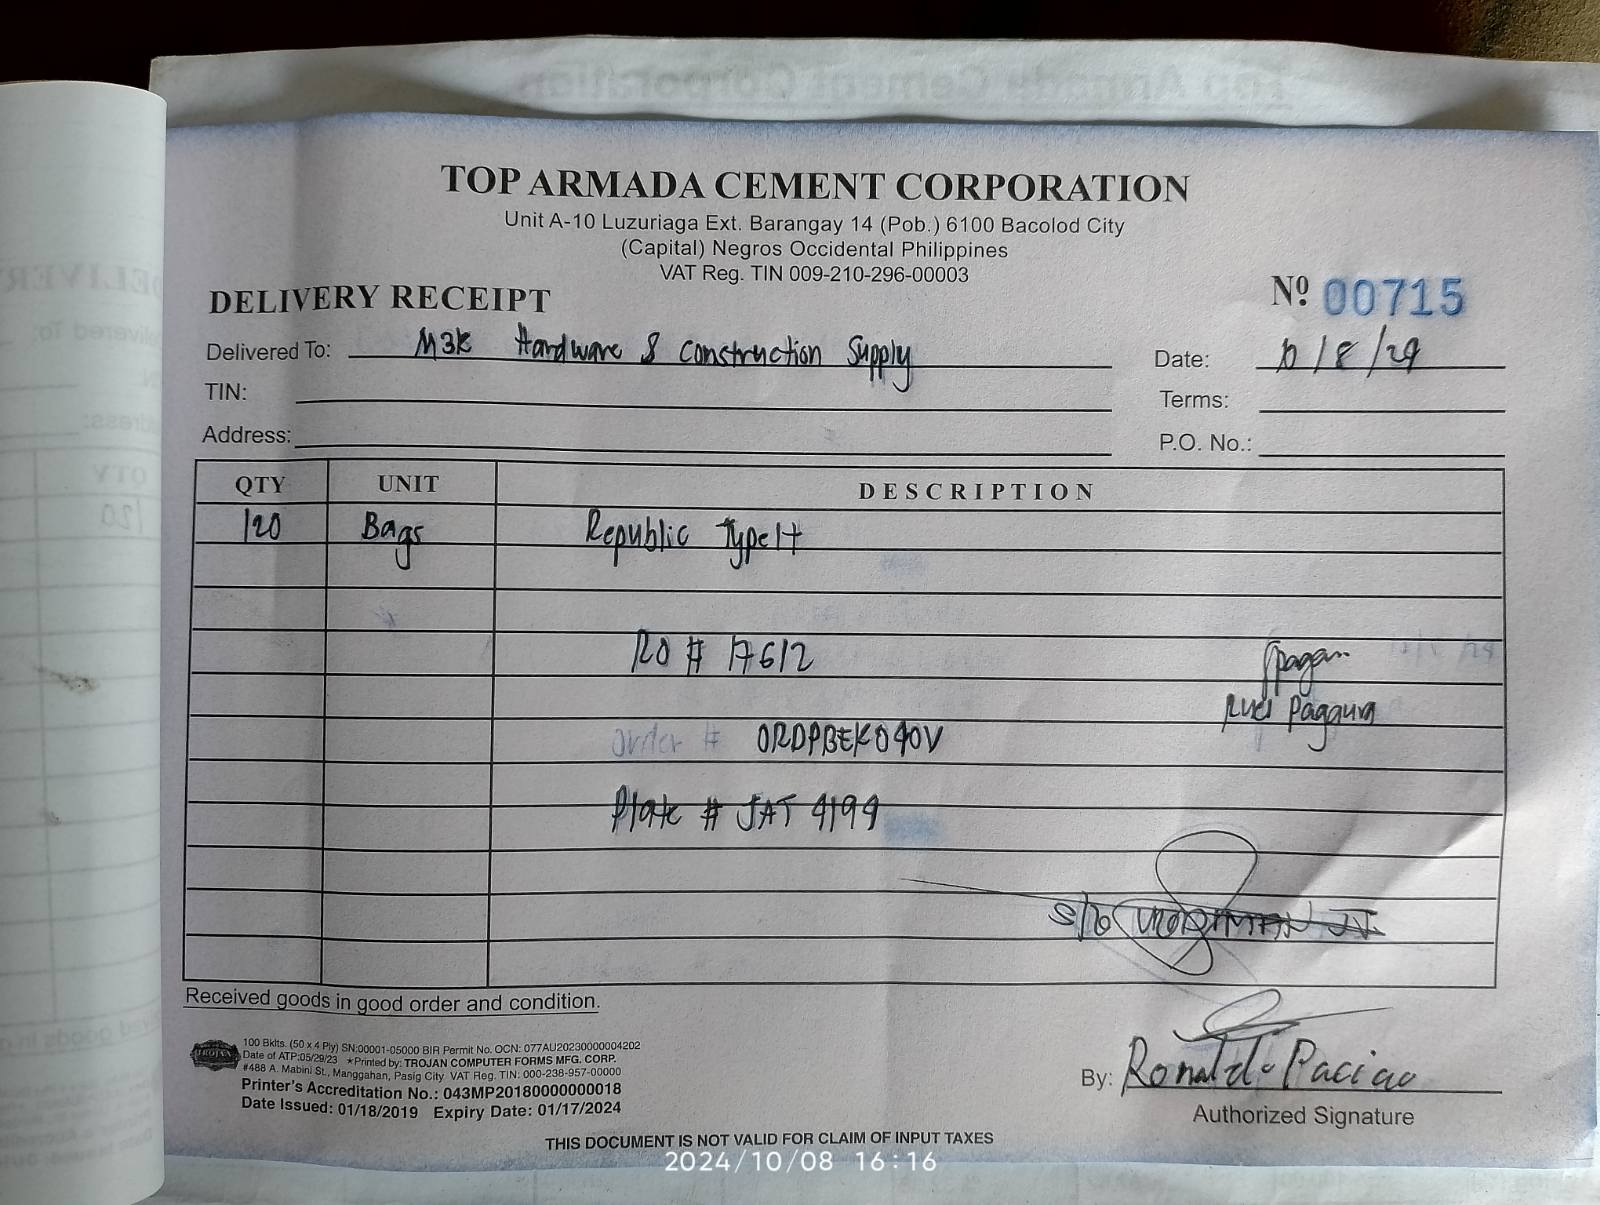 TOP ARMADA CEMENT CORPORATION
Unit A-10 Luzuriaga Ext. Barangay 14 (Pob.) 6100 Bacolod City
(Capital) Negros Occidental Philippines
VAT Reg. TIN 009-210-296-00003
DELIVERY RECEIPT
Nº 00715
Delivered To: M3K Hardware & Construction Supply
Date: 10/8/24
TIN:
Terms:
Address:
P.O. No.:
QTY UNIT DESCRIPTION
120 Bags Republic Type 1T
RO # 17612
Order # ORDPBEK040V
Plate # JAT 4199
S/O
Received goods in good order and condition.
100 Bklts. (50 x 4 Ply) SN:00001-05000 BIR Permit No. OCN: 077AU20230000004202
Date of ATP:05/29/23 ★Printed by: TROJAN COMPUTER FORMS MFG. CORP.
#488 A. Mabini St., Manggahan, Pasig City. VAT Reg. TIN: 000-238-957-00000
Printer's Accreditation No.: 043MP20180000000018
Date Issued: 01/18/2019 Expiry Date: 01/17/2024
By: Ronaldo Paciao
Authorized Signature
THIS DOCUMENT IS NOT VALID FOR CLAIM OF INPUT TAXES
2024/10/08 16:16